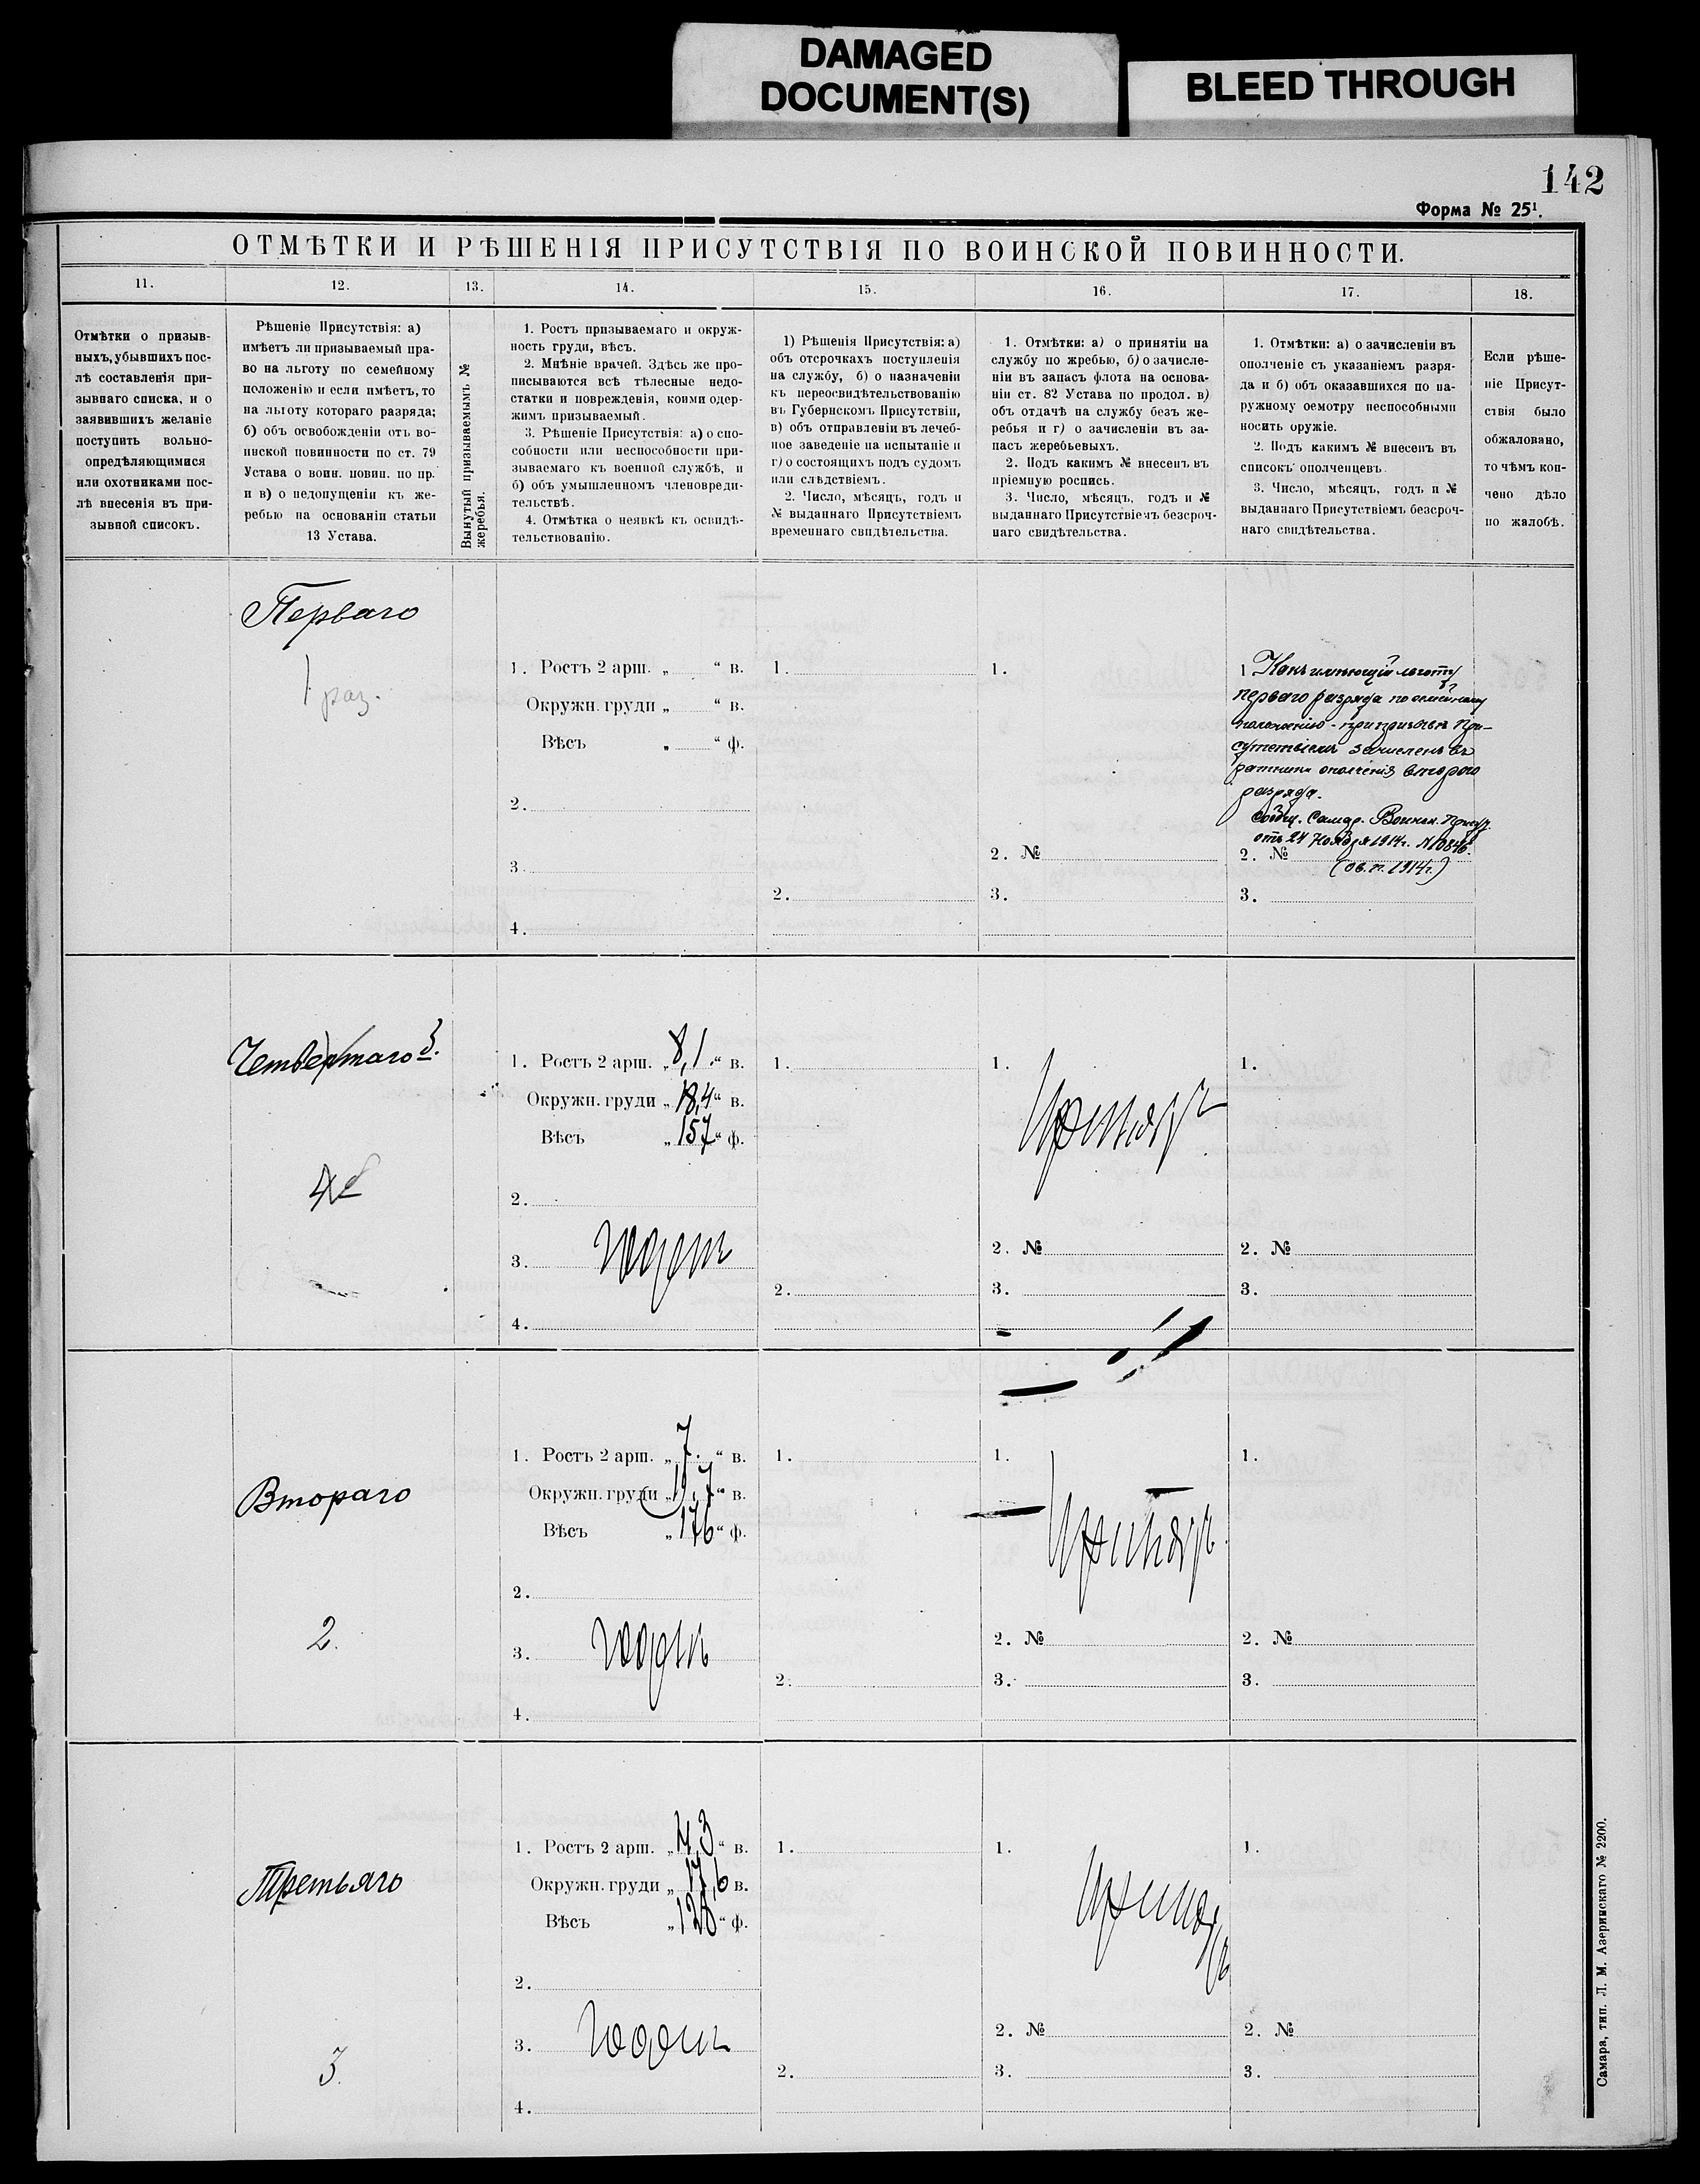 DAMAGED
DOCUMENT(S)
BLEED THROUGH
142
Форма № 25¹.
ОТМѢТКИ И РѢШЕНІЯ ПРИСУТСТВІЯ ПО ВОИНСКОЙ ПОВИННОСТИ.
11.
12.
13.
14.
15.
16.
17.
18.
Отмѣтки о призыв-
ныхъ, убывшихъ пос-
лѣ составленія при-
зывнаго списка, и о
заявившихъ желаніе
поступить вольно-
опредѣляющимися
или охотниками пос-
лѣ внесенія въ при-
зывной списокъ.
Рѣшеніе Присутствія: а)
имѣетъ ли призываемый пра-
во на льготу по семейному
положенію и если имѣетъ, то
на льготу котораго разряда;
б) объ освобожденіи отъ во-
инской повинности по ст. 79
Устава о воин. повин. по пр.
и в) о недопущеніи къ же-
ребью на основаніи статьи
13 Устава.
Вынутый призываемымъ №
жеребья.
1. Ростъ призываемаго и окруж-
ность груди, вѣсъ.
2. Мнѣніе врачей. Здѣсь же про-
писываются всѣ тѣлесные недо-
статки и поврежденія, коими одер-
жимъ призываемый.
3. Рѣшеніе Присутствія: а) о спо-
собности или неспособности при-
зываемаго къ военной службѣ, и
б) объ умышленномъ членовреди-
тельствѣ.
4. Отмѣтка о неявкѣ къ освидѣ-
тельствованію.
1) Рѣшенія Присутствія: а)
объ отсрочкахъ поступленія
на службу, б) о назначеніи
къ переосвидѣтельствованію
въ Губернскомъ Присутствіи,
в) объ отправленіи въ лечеб-
ное заведеніе на испытаніе и
г) о состоящихъ подъ судомъ
или слѣдствіемъ.
2. Число, мѣсяцъ, годъ и
№ выданнаго Присутствіемъ
временнаго свидѣтельства.
1. Отмѣтки: а) о принятіи на
службу по жребью, б) о зачисле-
ніи въ запасъ флота на основа-
ніи ст. 82 Устава по продол. в)
объ отдачѣ на службу безъ же-
ребья и г) о зачисленіи въ за-
пасъ жеребьевыхъ.
2. Подъ какимъ № внесенъ въ
пріемную роспись.
3. Число, мѣсяцъ, годъ и №
выданнаго Присутствіемъ безсроч-
наго свидѣтельства.
1. Отмѣтки: а) о зачисленіи въ
ополченіе съ указаніемъ разря-
да и б) объ оказавшихся по на-
ружному осмотру неспособными
носить оружіе.
2. Подъ какимъ № внесенъ въ
списокъ ополченцевъ.
3. Число, мѣсяцъ, годъ и №
выданнаго Присутствіемъ безсроч-
наго свидѣтельства.
Если рѣше-
ніе Присут-
ствія было
обжаловано,
то чѣмъ кон-
чено дѣло
по жалобѣ.
Перваго
1 раз.
1. Ростъ 2 арш. „ “ в.
Окружн. груди „ “ в.
Вѣсъ „ “ ф.
2.
3.
4.
1.
2.
1.
2. №
3.
1. Какъ имѣющій льготу
перваго разряда по семейному
положенію - при призывѣ При-
сутствіемъ зачисленъ въ
ратники ополченія второго
разряда.
Сообщ. Самар. Воинск. Присут.
отъ 24 Ноября 1914 г. №10346.
2. №
(ов. п. 1914 г.)
3.
Четвертаго 3.
4
1. Ростъ 2 арш. „ 8,1 “ в.
Окружн. груди „ 18,4 “ в.
Вѣсъ „ 157 “ ф.
2.
3. Годенъ
4.
1.
2.
1. Принятъ
2. №
3.
1.
2. №
3.
Втораго
2.
1. Ростъ 2 арш. „ 7. “ в.
Окружн. груди „ 19,7 “ в.
Вѣсъ „ 176 “ ф.
2.
3. Годенъ
4.
1.
2.
1. Принятъ
2. №
3.
1.
2. №
3.
Третьяго
3.
1. Ростъ 2 арш. „ 4,3 “ в.
Окружн. груди „ 17,6 в.
Вѣсъ „ 128 “ ф.
2.
3. Годенъ
4.
1.
2.
1. Принятъ
2. №
3.
1.
2. №
3.
Самара, тип. Л. М. Азеринскаго № 2200.